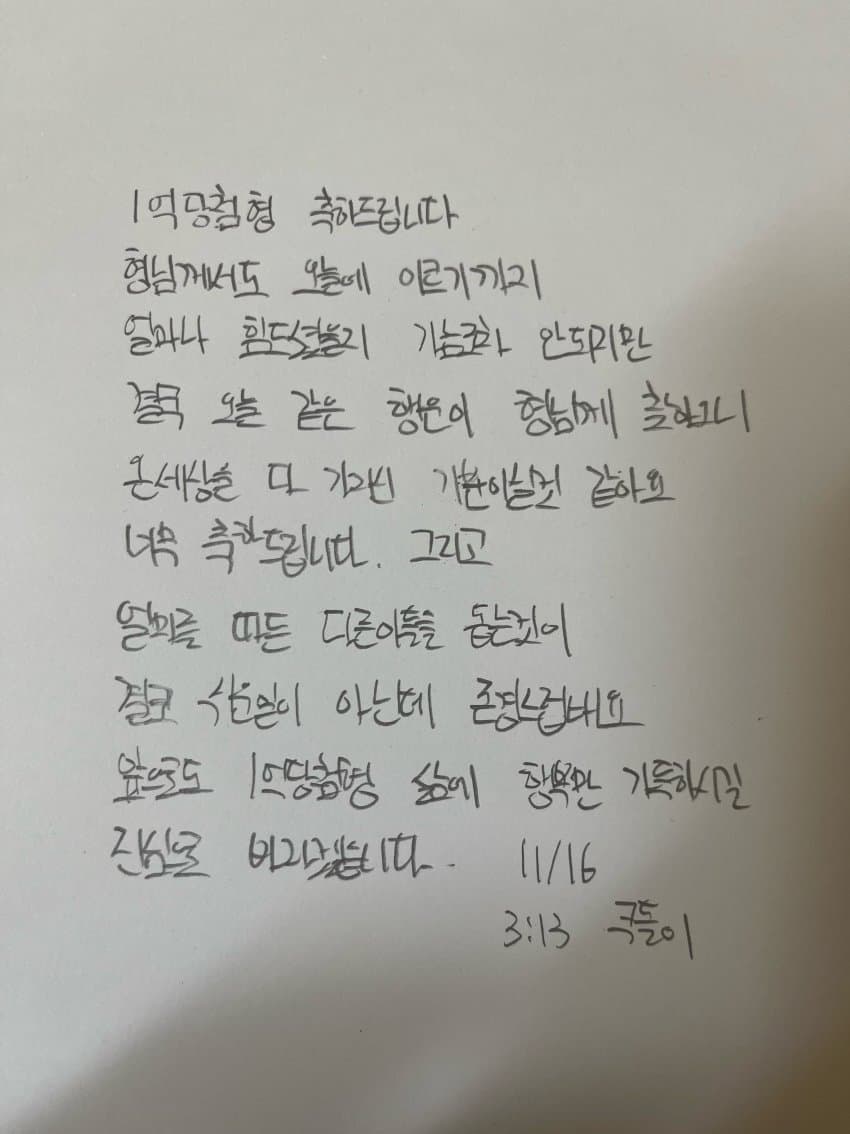 1억당첨형 축하드립니다
형님께서도 오늘에 이르기까지
얼마나 힘드셨을지 가늠조차 안되지만
결국 오늘 같은 행운이 형님께 찾아오니
온세상을 다 가지신 기분이실것 같아요
너무 축하드립니다. 그리고
얼마를 따든 다른이들을 돕는것이
결코 쉬운일이 아닌데 존경스럽네요
앞으로도 1억당첨형 삶에 행복만 가득하시길
진심으로 바라겠습니다.    11/16
3:13 국돌이